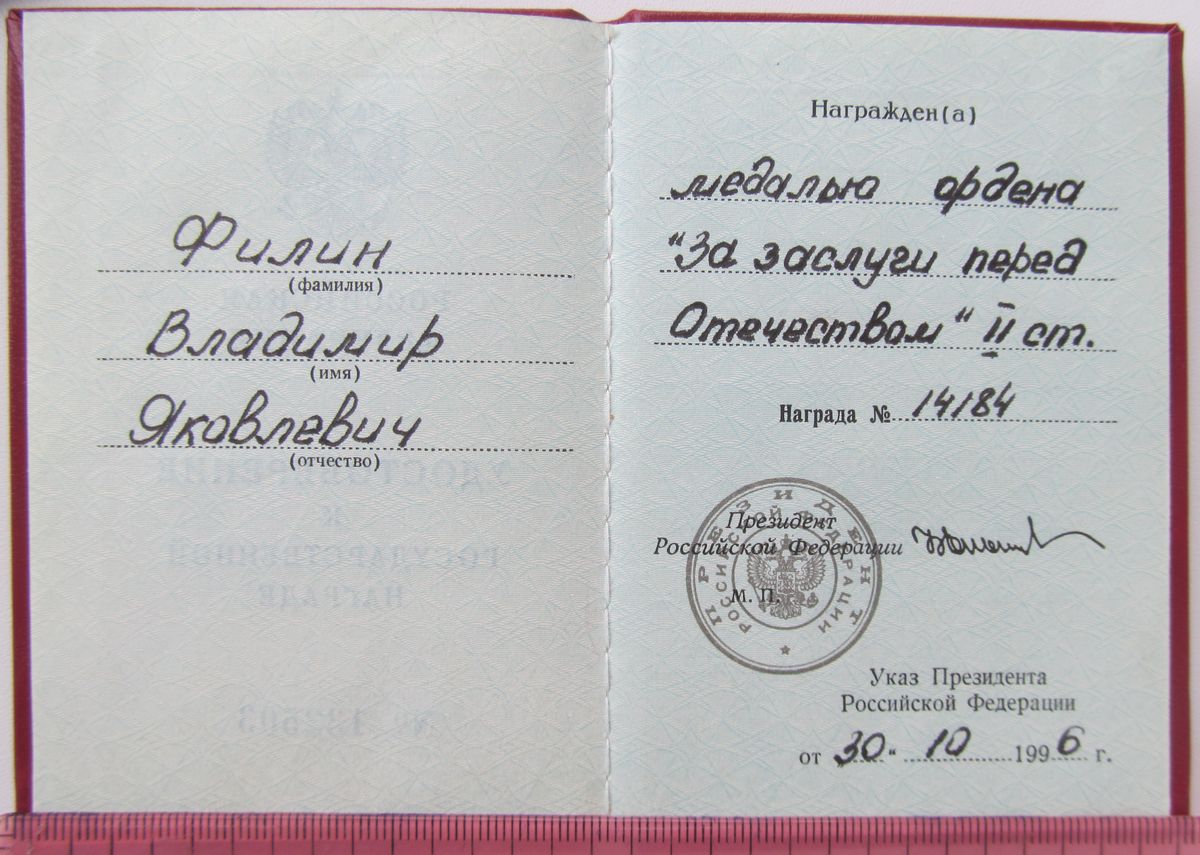 Филин
(фамилия)
Владимир
(имя)
Яковлевич
(отчество)
УДОСТОВЕРЕНИЕ
К
ГОСУДАРСТВЕННОЙ
НАГРАДЕ
Награжден(а)
медалью ордена
"За заслуги перед
Отечеством" II ст.
Награда № 14184
Президент
Российской Федерации
М. П.
ПРЕЗИДЕНТ
РОССИЙСКОЙ ФЕДЕРАЦИИ
Указ Президента
Российской Федерации
от 30 " 10 1996 г.